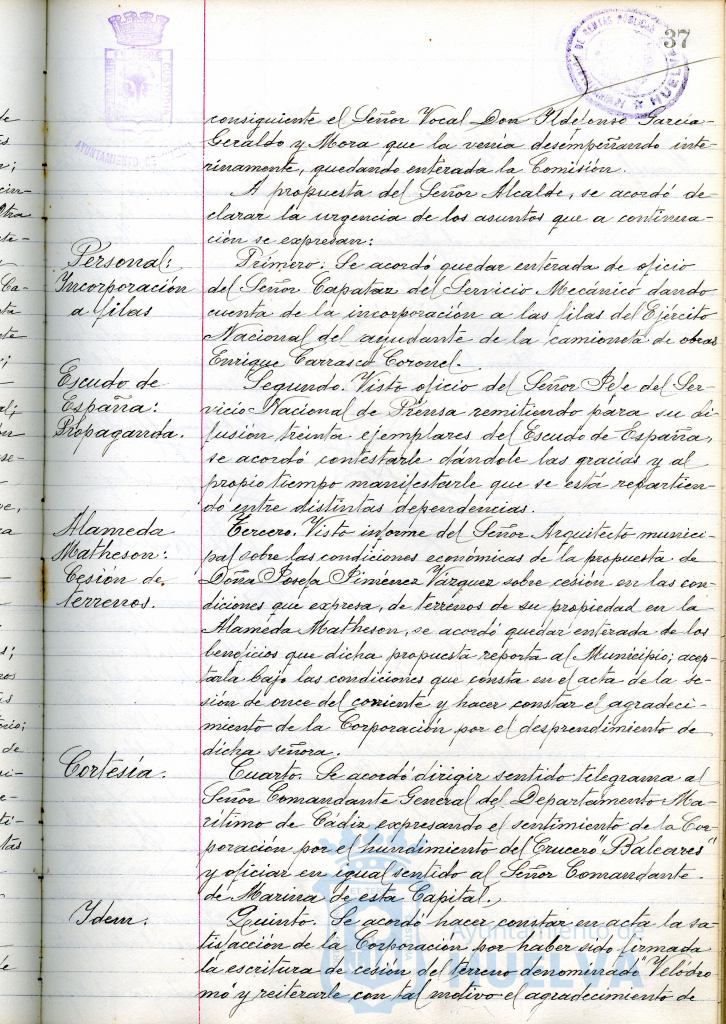 37
consiguiente el Señor Vocal Don Ildefonso García-
Geraldo y Mora que la venía desempeñando inte-
rinamente, quedando enterada la Comisión.
A propuesta del Señor Alcalde, se acordó de-
clarar la urgencia de los asuntos que a continua-
ción se expresan:
Personal:
Incorporación
a filas
Primero. Se acordó quedar enterada de oficio
del Señor Capataz del Servicio Mecánico dando
cuenta de la incorporación a las filas del Ejército
Nacional del ayudante de la camioneta de obras
Enrique Carrasco Coronel.
Escudo de
España:
Propaganda.
Segundo. Visto oficio del Señor Jefe del Ser-
vicio Nacional de Prensa remitiendo para su di-
fusión treinta ejemplares del Escudo de España,
se acordó contestarle dándole las gracias y al
propio tiempo manifestarle que se está repartien-
do entre distintas dependencias.
Alameda
Matheson:
Cesión de
terrenos.
Tercero. Visto informe del Señor Arquitecto munici-
pal sobre las condiciones económicas de la propuesta de
Doña Josefa Jiménez Vázquez sobre cesión en las con-
diciones que expresa, de terrenos de su propiedad en la
Alameda Matheson, se acordó quedar enterada de los
beneficios que dicha propuesta reporta al Municipio; acep-
tarla bajo las condiciones que consta en el acta de la se-
sión de once del corriente y hacer constar el agradeci-
miento de la Corporación por el desprendimiento de
dicha señora.
Cortesía.
Cuarto. Se acordó dirigir sentido telegrama al
Señor Comandante General del Departamento Ma-
rítimo de Cádiz expresando el sentimiento de la Cor-
poración por el hundimiento del Crucero "Baleares"
y oficiar en igual sentido al Señor Comandante
de Marina de esta Capital.
Idem.
Quinto. Se acordó hacer constar en acta la sa-
tisfacción de la Corporación por haber sido firmada
la escritura de cesión del terreno denominado "Velódro
mo" y reiterarle con tal motivo el agradecimiento de
Ayuntamiento de
HUELVA